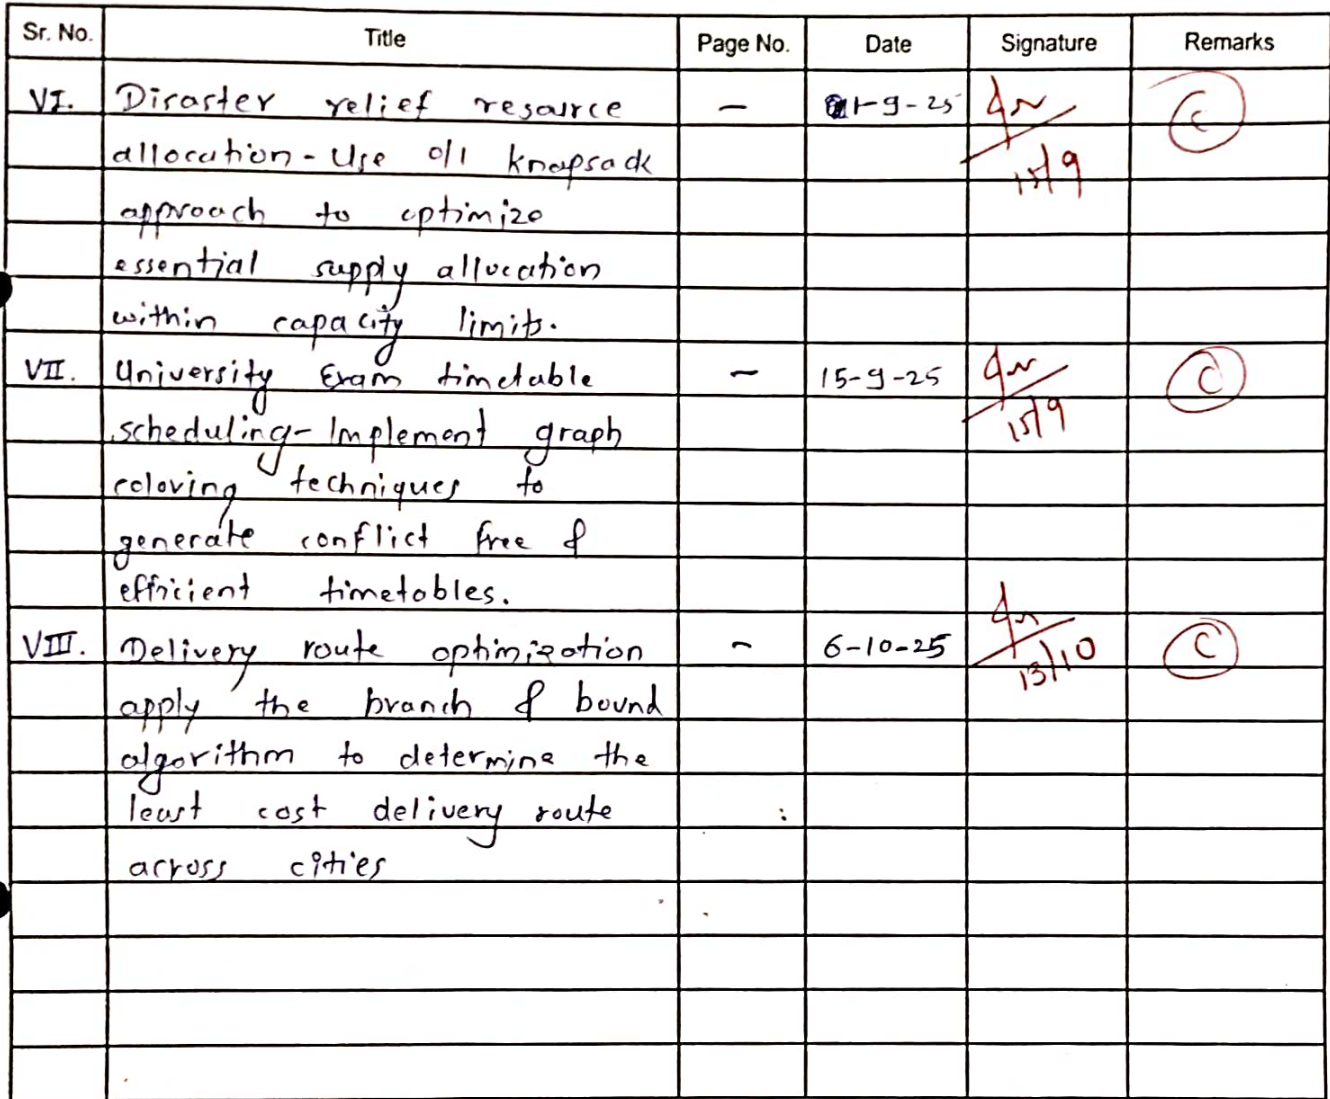 Sr. No. Title Page No. Date Signature Remarks
VI. Disaster relief resource - 1-9-25 C
allocation - Use 0/1 knapsack 15/9
approach to optimize
essential supply allocation
within capacity limits.
VII. University Exam timetable - 15-9-25 C
scheduling - Implement graph 15/9
coloring techniques to
generate conflict free &
efficient timetables.
VIII. Delivery route optimization - 6-10-25 13/10 C
apply the branch & bound
algorithm to determine the
least cost delivery route
across cities